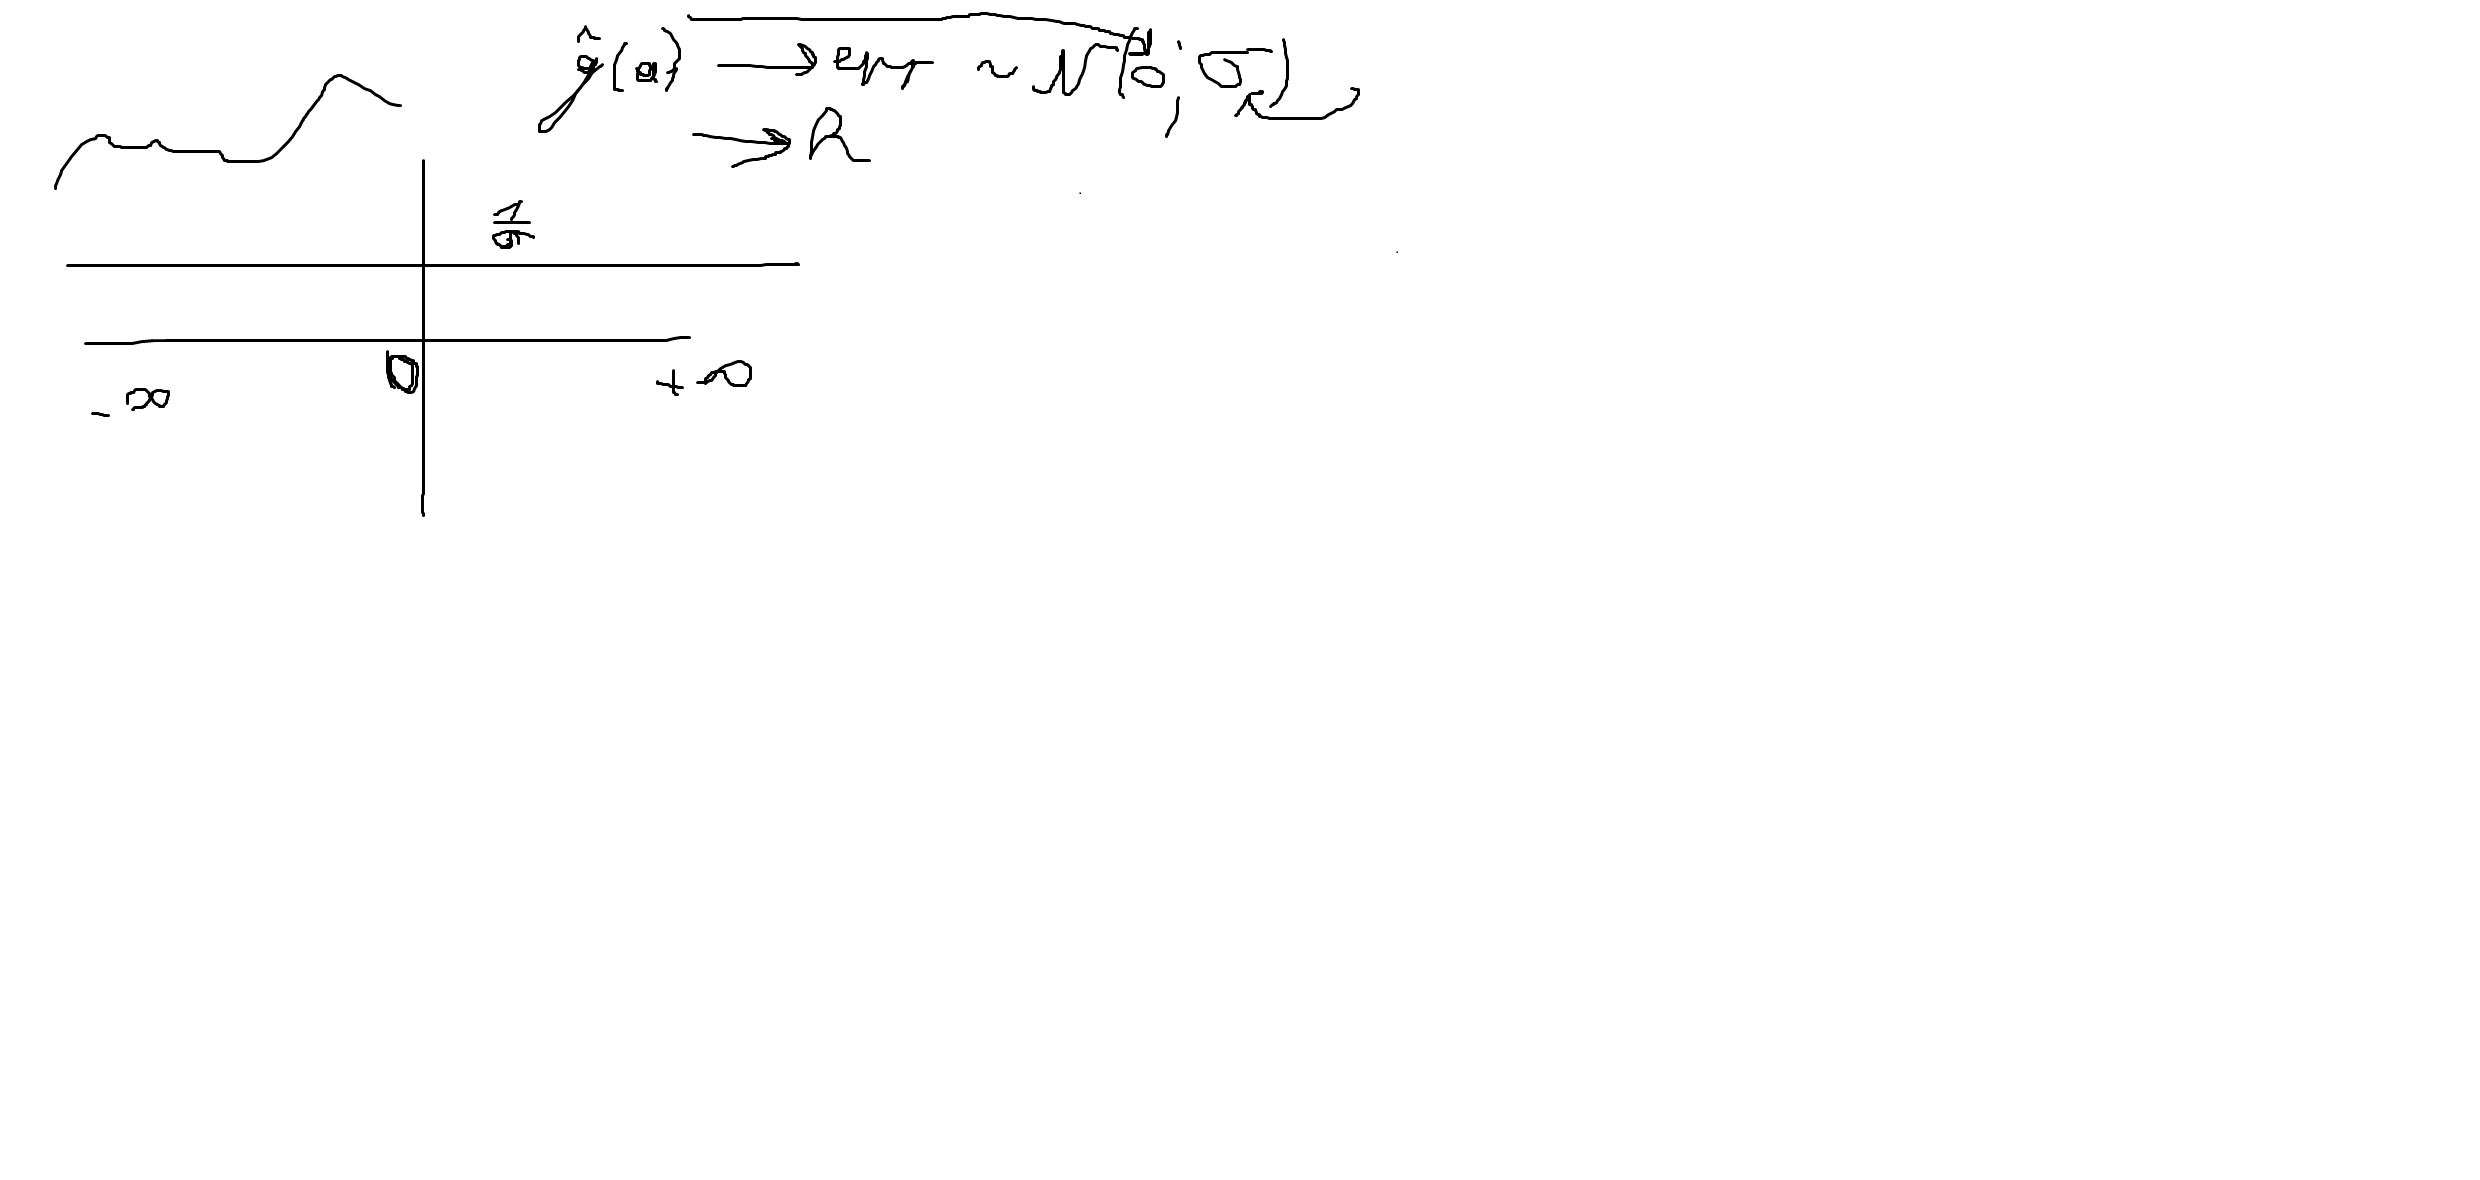 ĝ(a) → err ~ N(0, σ)
→ R
1/σ
0
+∞
-∞